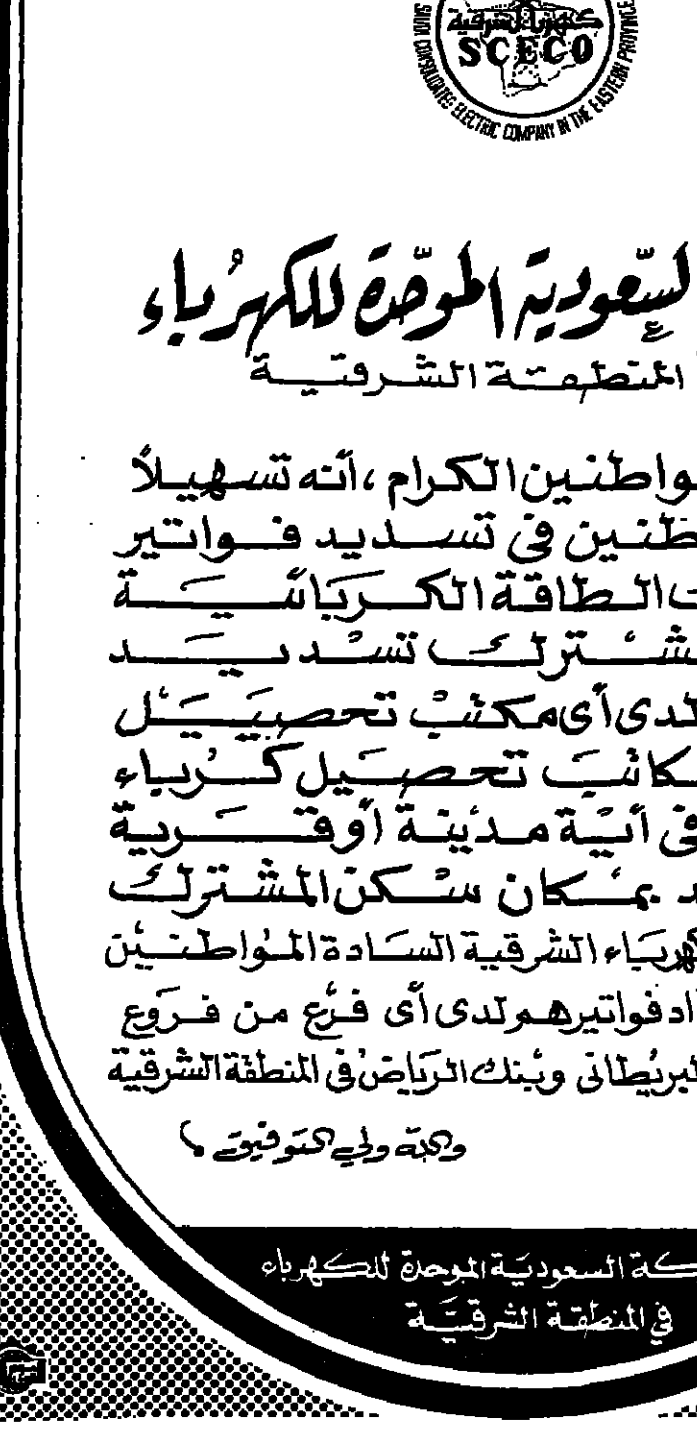 كهرباء الشرقية
SCECO
SAUDI CONSOLIDATED ELECTRIC COMPANY IN THE EASTERN PROVINCE
لسعودية الموحدة للكهرباء
المنطقة الشرقية
واطنين الكرام ، أنه تسهيلاً
طنين في تسديد فواتير
ت الطاقة الكربائية
شترك تسديد
لدى أي مكتب تحصيل
كاتب تحصيل كرباء
في أية مدينة أو قرية
د بمكان سكن المشترك
كهرباء الشرقية السادة المواطنين
اد فواتيرهم لدى أى فرع من فروع
البريطانى وبنك الرياض في المنطقة الشرقية
والله ولي التوفيق
كة السعودية الموحدة للكهرباء
في المنطقة الشرقية